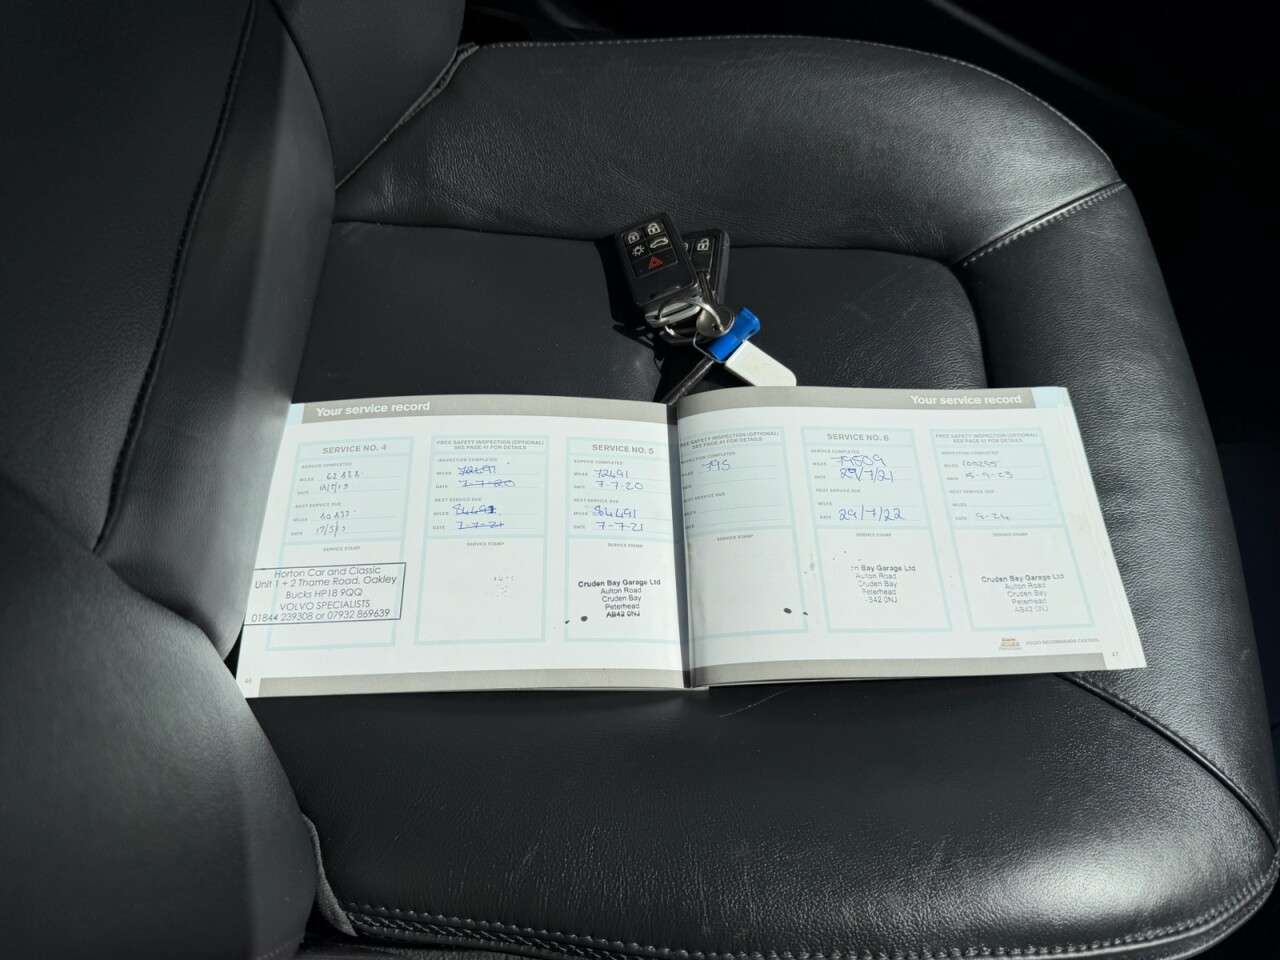 Your service record
SERVICE NO. 4
SERVICE COMPLETED
MILES
DATE
NEXT SERVICE DUE
MILES
DATE
SERVICE STAMP
Horton Car and Classic
Unit 1 + 2 Thame Road, Oakley
Bucks HP18 9QQ
VOLVO SPECIALISTS
01844 239308 or 07932 869639
46
FREE SAFETY INSPECTION (OPTIONAL)
SEE PAGE 41 FOR DETAILS
INSPECTION COMPLETED
MILES 72491
DATE 7-7-20
NEXT SERVICE DUE
MILES 84491
DATE 7-7-21
SERVICE STAMP
SERVICE NO. 5
SERVICE COMPLETED
MILES 72491
DATE 7-7-20
NEXT SERVICE DUE
MILES 84491
DATE 7-7-21
SERVICE STAMP
Cruden Bay Garage Ltd
Aulton Road
Cruden Bay
Peterhead
AB42 0NJ
Your service record
FREE SAFETY INSPECTION (OPTIONAL)
SEE PAGE 41 FOR DETAILS
INSPECTION COMPLETED
MILES 795
DATE
NEXT SERVICE DUE
MILES
DATE
SERVICE STAMP
SERVICE NO. 6
SERVICE COMPLETED
MILES 79509
DATE 29/7/21
NEXT SERVICE DUE
MILES
DATE 29/7/22
SERVICE STAMP
Bay Garage Ltd
Aulton Road
Cruden Bay
Peterhead
B42 0NJ
FREE SAFETY INSPECTION (OPTIONAL)
SEE PAGE 41 FOR DETAILS
INSPECTION COMPLETED
MILES
DATE
NEXT SERVICE DUE
MILES
DATE 9-24
SERVICE STAMP
Cruden Bay Garage Ltd
Aulton Road
Cruden Bay
Peterhead
AB42 0NJ
VOLVO RECOMMENDS CASTROL
47